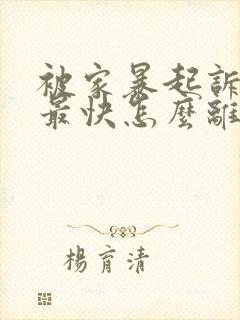 被家暴起訴
最快怎麼離
楊育清